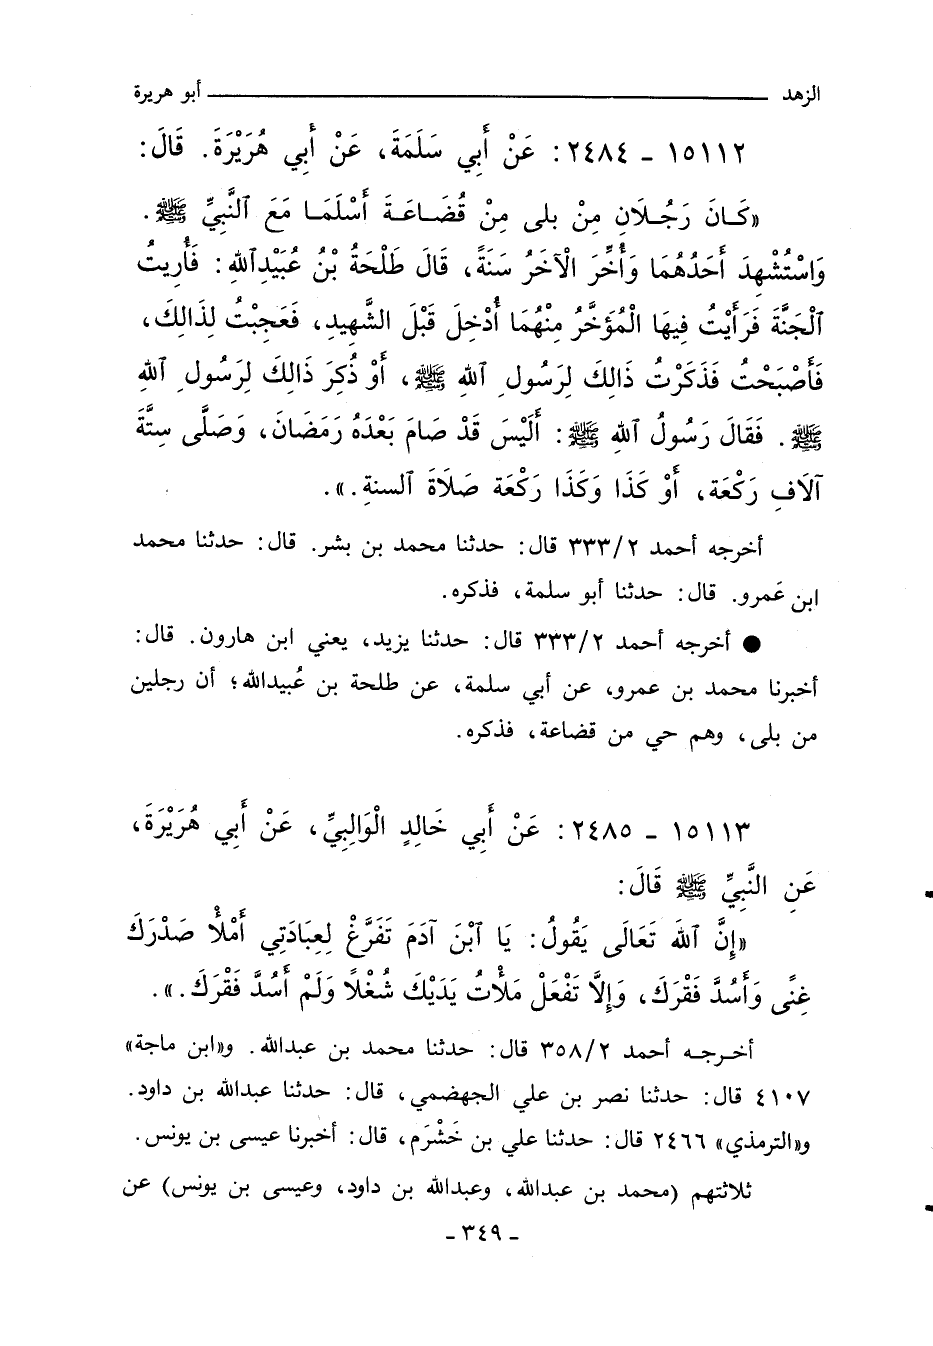 الزهد ــــــــــ أبو هريرة
١٥١١٢ - ٢٤٨٤ : عَنْ أَبِي سَلَمَةَ، عَنْ أَبِي هُرَيْرَةَ. قَالَ:
«كَانَ رَجُلَانِ مِنْ بلى مِنْ قُضَاعَةَ أَسْلَمَا مَعَ ٱلنَّبِيِّ ﷺ.
وَاسْتُشْهِدَ أَحَدُهُمَا وَأُخِّرَ الْآخَرُ سَنَةً، قَالَ طَلْحَةُ بْنُ عُبَيْدِٱللهِ: فَأُرِيتُ
ٱلْجَنَّةَ فَرَأَيْتُ فِيهَا الْمُؤَخَّرُ مِنْهُمَا أُدْخِلَ قَبْلَ الشَّهِيدِ، فَعَجِبْتُ لِذَالِكَ،
فَأَصْبَحْتُ فَذَكَرْتُ ذَالِكَ لِرَسُولِ ٱللهِ ﷺ، أَوْ ذُكِرَ ذَالِكَ لِرَسُولِ ٱللهِ
ﷺ. فَقَالَ رَسُولُ ٱللهِ ﷺ: أَلَيْسَ قَدْ صَامَ بَعْدَهُ رَمَضَانَ، وَصَلَّى سِتَّةَ
آلَافِ رَكْعَة، أَوْ كَذَا وَكَذَا رَكْعَة صَلَاةَ ٱلسنةِ.».
أخرجه أحمد ٣٣٣/٢ قال: حدثنا محمد بن بشر. قال: حدثنا محمد
ابن عَمرو. قال: حدثنا أبو سلمة، فذكره.
● أخرجه أحمد ٣٣٣/٢ قال: حدثنا يزيد، يعني ابن هارون. قال:
أخبرنا محمد بن عمرو، عن أبي سلمة، عن طلحة بن عُبيدالله؛ أن رجلين
من بلى، وهم حي من قضاعة، فذكره.
١٥١١٣ - ٢٤٨٥ : عَنْ أَبِي خَالِدٍ الْوَالِبِيِّ، عَنْ أَبِي هُرَيْرَةَ،
عَنِ النَّبِيِّ ﷺ قَالَ:
«إِنَّ ٱللهَ تَعَالَى يَقُولُ: يَا ٱبْنَ آدَمَ تَفَرَّغْ لِعِبَادَتِي أَمْلَأْ صَدْرَكَ
غِنًى وَأَسُدَّ فَقْرَكَ، وَإِلَّا تَفْعَلْ مَلَأْتُ يَدَيْكَ شُغْلًا وَلَمْ أَسُدَّ فَقْرَكَ.».
أخرجه أحمد ٣٥٨/٢ قال: حدثنا محمد بن عبدالله. و«ابن ماجة»
٤١٠٧ قال: حدثنا نصر بن علي الجهضمي، قال: حدثنا عبدالله بن داود.
و«الترمذي» ٢٤٦٦ قال: حدثنا علي بن خَشْرَم، قال: أخبرنا عيسى بن يونس.
ثلاثتهم (محمد بن عبدالله، وعبدالله بن داود، وعيسى بن يونس) عن
- ٣٤٩ -